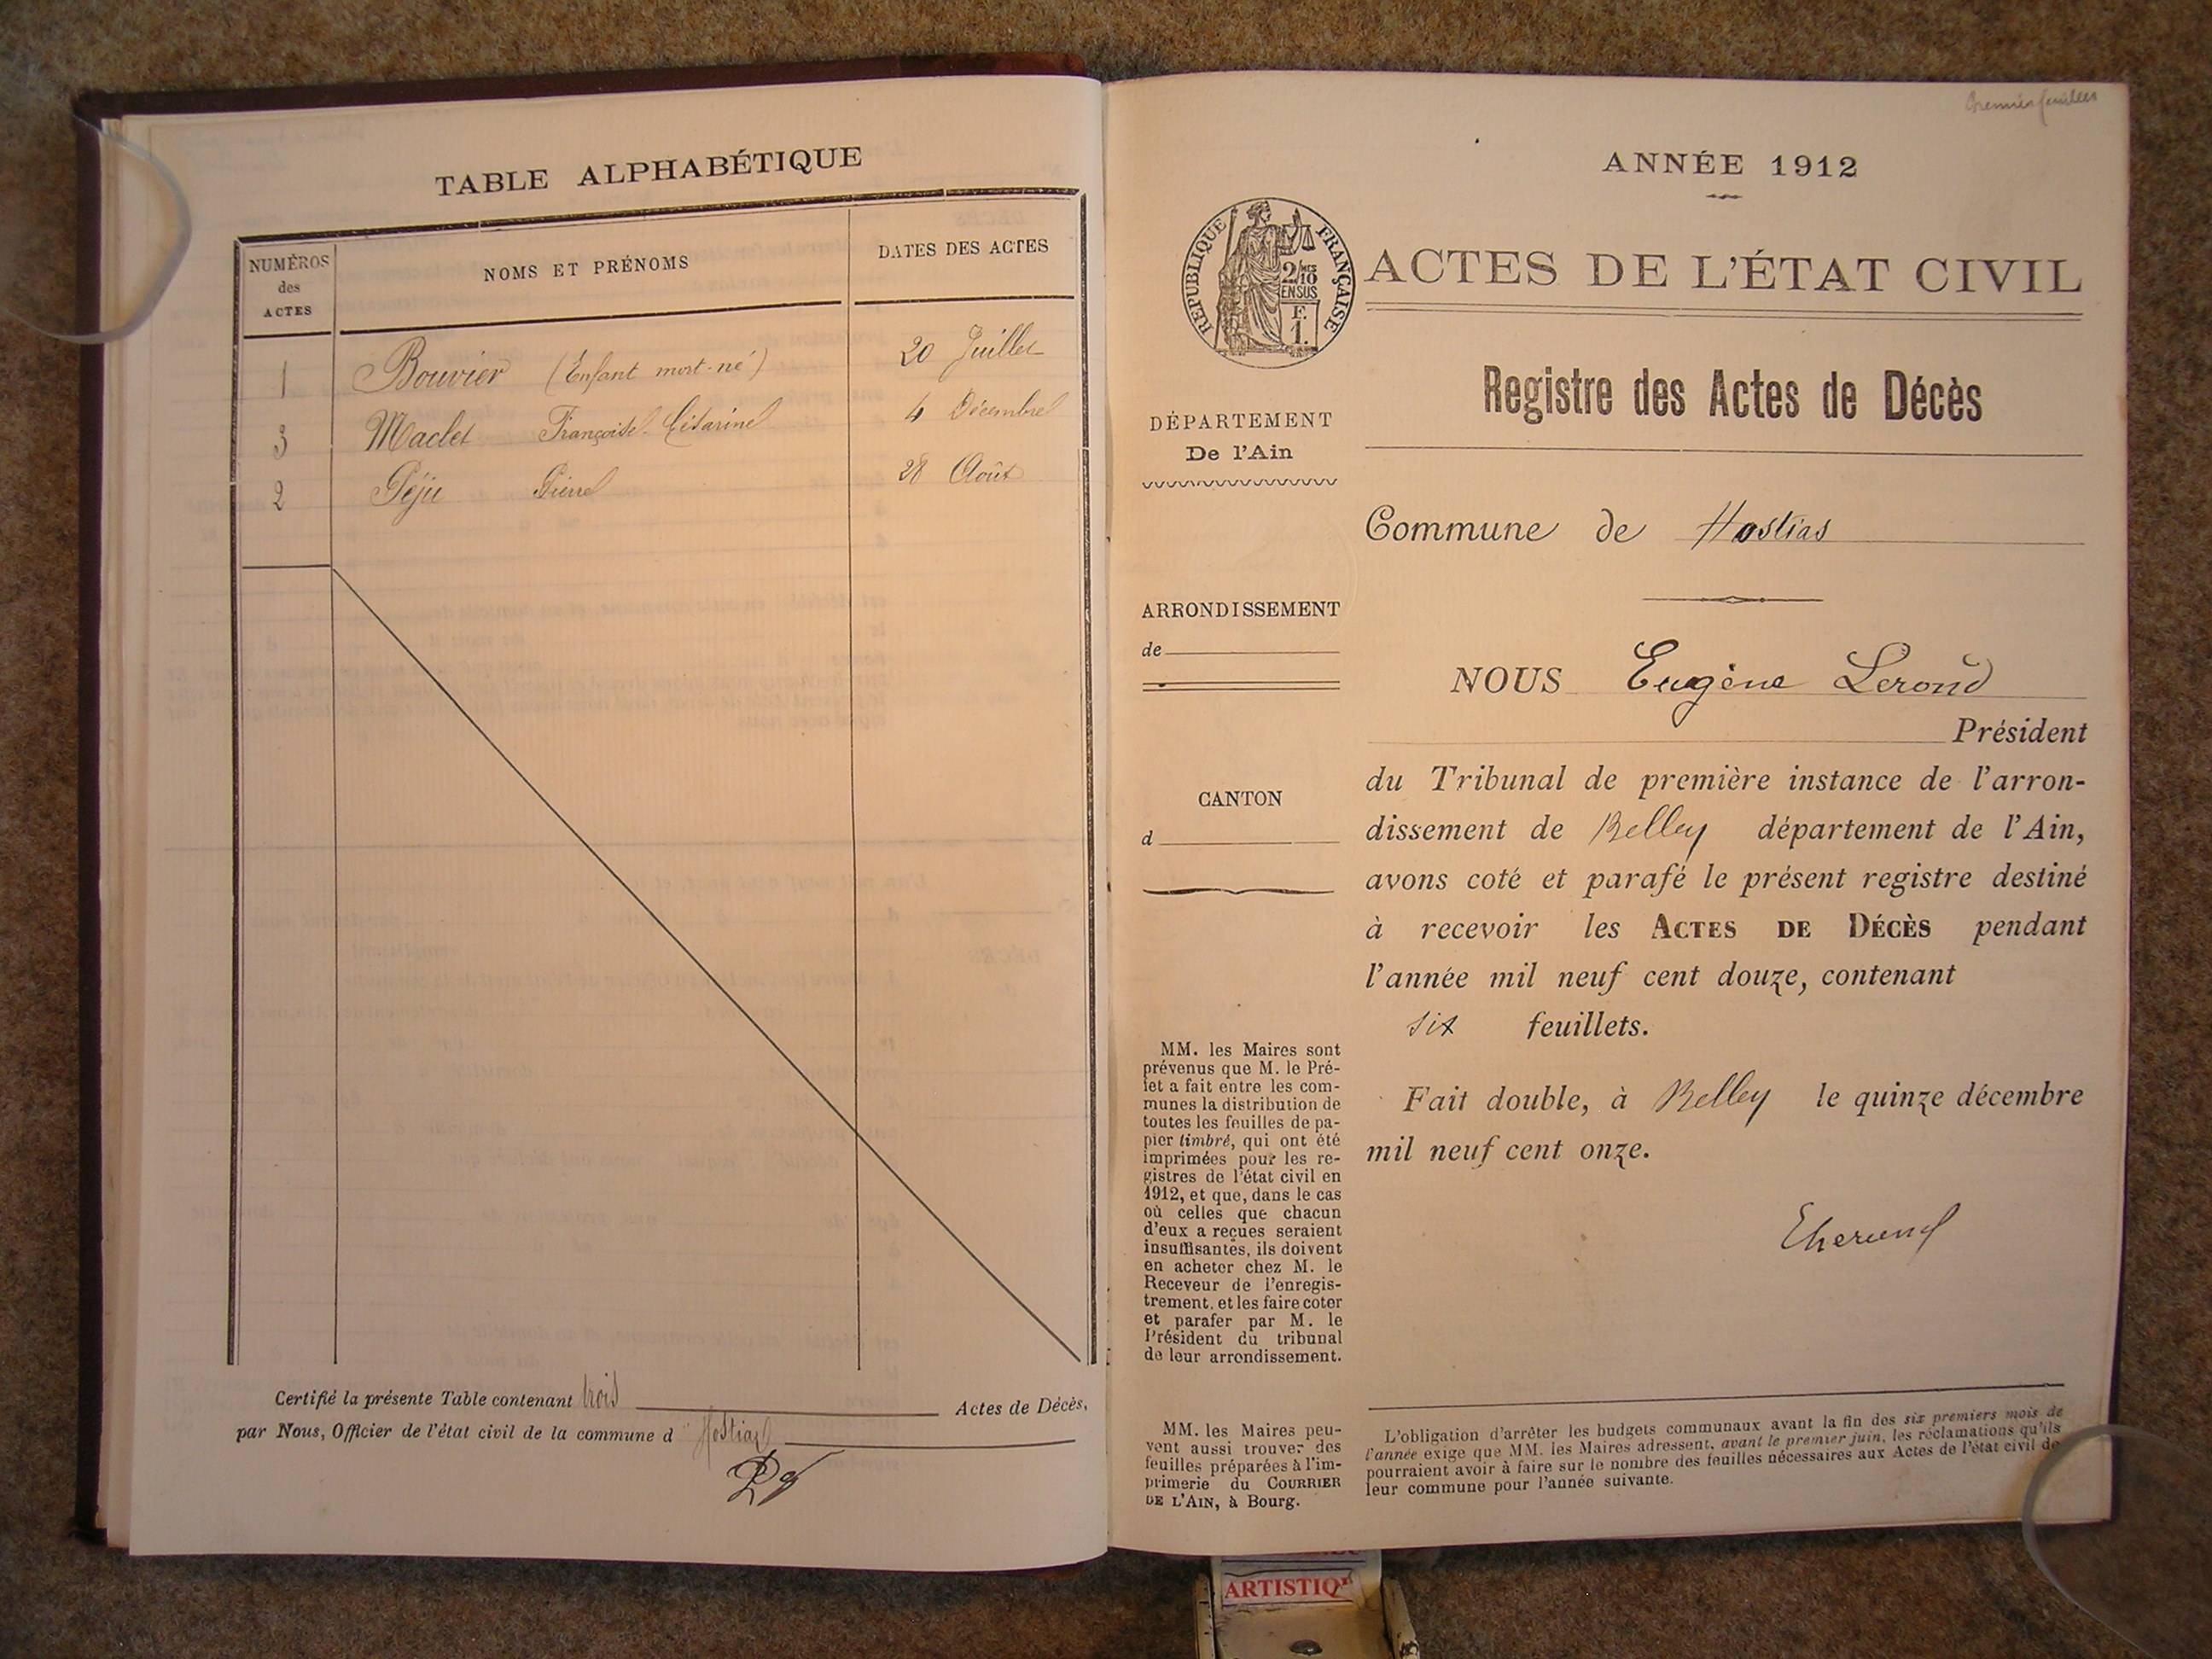 TABLE ALPHABÉTIQUE
NUMÉROS des ACTES NOMS ET PRÉNOMS DATES DES ACTES
1 Bouvier (Enfant mort-né) 20 Juillet
3 Maclet Françoise Césarine 4 Décembre
2 Péju Pierre 28 Août
Certifié la présente Table contenant trois Actes de Décès,
par Nous, Officier de l'état civil de la commune d Hostiaz
ANNÉE 1912
RÉPUBLIQUE FRANÇAISE
2/10
EN SUS
F.
1.
ACTES DE L'ÉTAT CIVIL
Registre des Actes de Décès
DÉPARTEMENT
De l'Ain
Commune de Hostias
ARRONDISSEMENT
de
CANTON
d
NOUS Eugène Lerond
Président
du Tribunal de première instance de l'arron-
dissement de Belley département de l'Ain,
avons coté et parafé le présent registre destiné
à recevoir les ACTES DE DÉCÈS pendant
l'année mil neuf cent douze, contenant
six feuillets.
Fait double, à Belley le quinze décembre
mil neuf cent onze.
MM. les Maires sont
prévenus que M. le Pré-
fet a fait entre les com-
munes la distribution de
toutes les feuilles de pa-
pier timbré, qui ont été
imprimées pour les re-
gistres de l'état civil en
1912, et que, dans le cas
où celles que chacun
d'eux a reçues seraient
insuffisantes, ils doivent
en acheter chez M. le
Receveur de l'enregis-
trement, et les faire coter
et parafer par M. le
Président du tribunal
de leur arrondissement.
MM. les Maires peu-
vent aussi trouver des
feuilles préparées à l'im-
primerie du COURRIER
DE L'AIN, à Bourg.
L'obligation d'arrêter les budgets communaux avant la fin des six premiers mois de
l'année exige que MM. les Maires adressent, avant le premier juin, les réclamations qu'ils
pourraient avoir à faire sur le nombre des feuilles nécessaires aux Actes de l'état civil de
leur commune pour l'année suivante.
ARTISTIQ